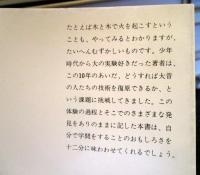 たとえば木と木で火を起こすという
ことも、やってみるとわかりますが、
たいへんむずかしいものです。少年
時代から大の実験好きだった著者は、
この10年のあいだ、どうすれば大昔
の人たちの技術を復原できるか、と
いう課題に挑戦してきました。この
体験の過程とそこでのさまざまな発
見をありのままに記した本書は、自
分で学問をすることのおもしろさを
十二分に味わわせてくれるでしょう。